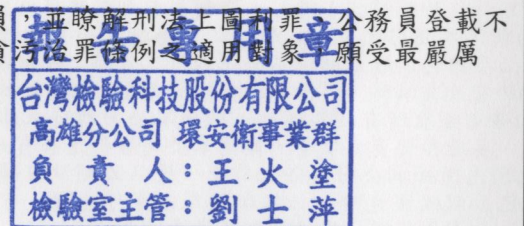 員，並瞭解刑法上圖利罪、公務員登載不
貪污治罪條例之適用對象，願受最嚴厲
報告專用章
台灣檢驗科技股份有限公司
高雄分公司 環安衛事業群
負責人：王火塗
檢驗室主管：劉士萍